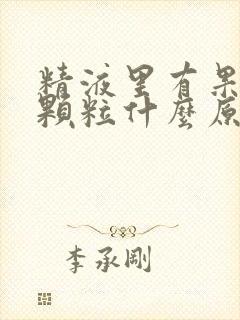 精液里有果
顆粒什麼原
李承剛